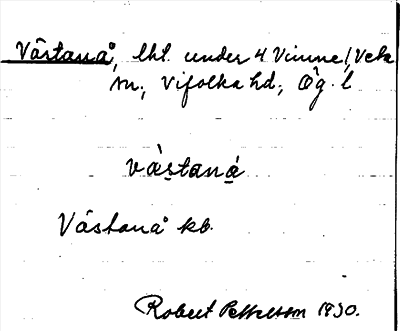 Västanå, lht. under 4 Vimne/Veta
m., Vifolka hd; Ög. l
vàstaná
Västanå kb.
Robert Pettersson 1930.